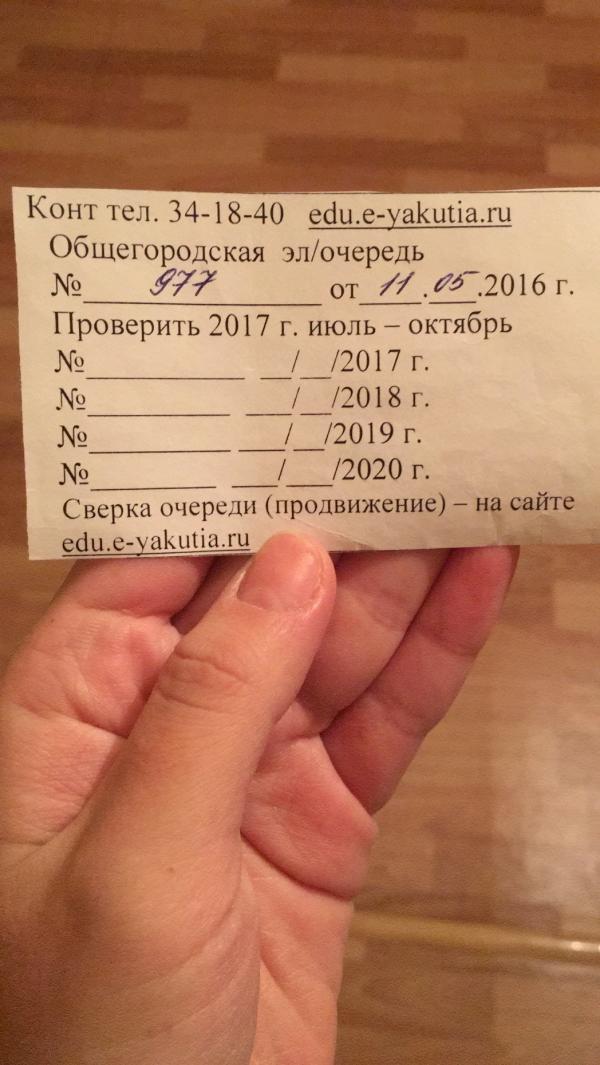 Конт тел. 34-18-40 edu.e-yakutia.ru
Общегородская эл/очередь
№___977___ от__11__.__05__.2016 г.
Проверить 2017 г. июль – октябрь
№__________ __/__/2017 г.
№__________ __/__/2018 г.
№__________ __/__/2019 г.
№__________ __/__/2020 г.
Сверка очереди (продвижение) – на сайте
edu.e-yakutia.ru